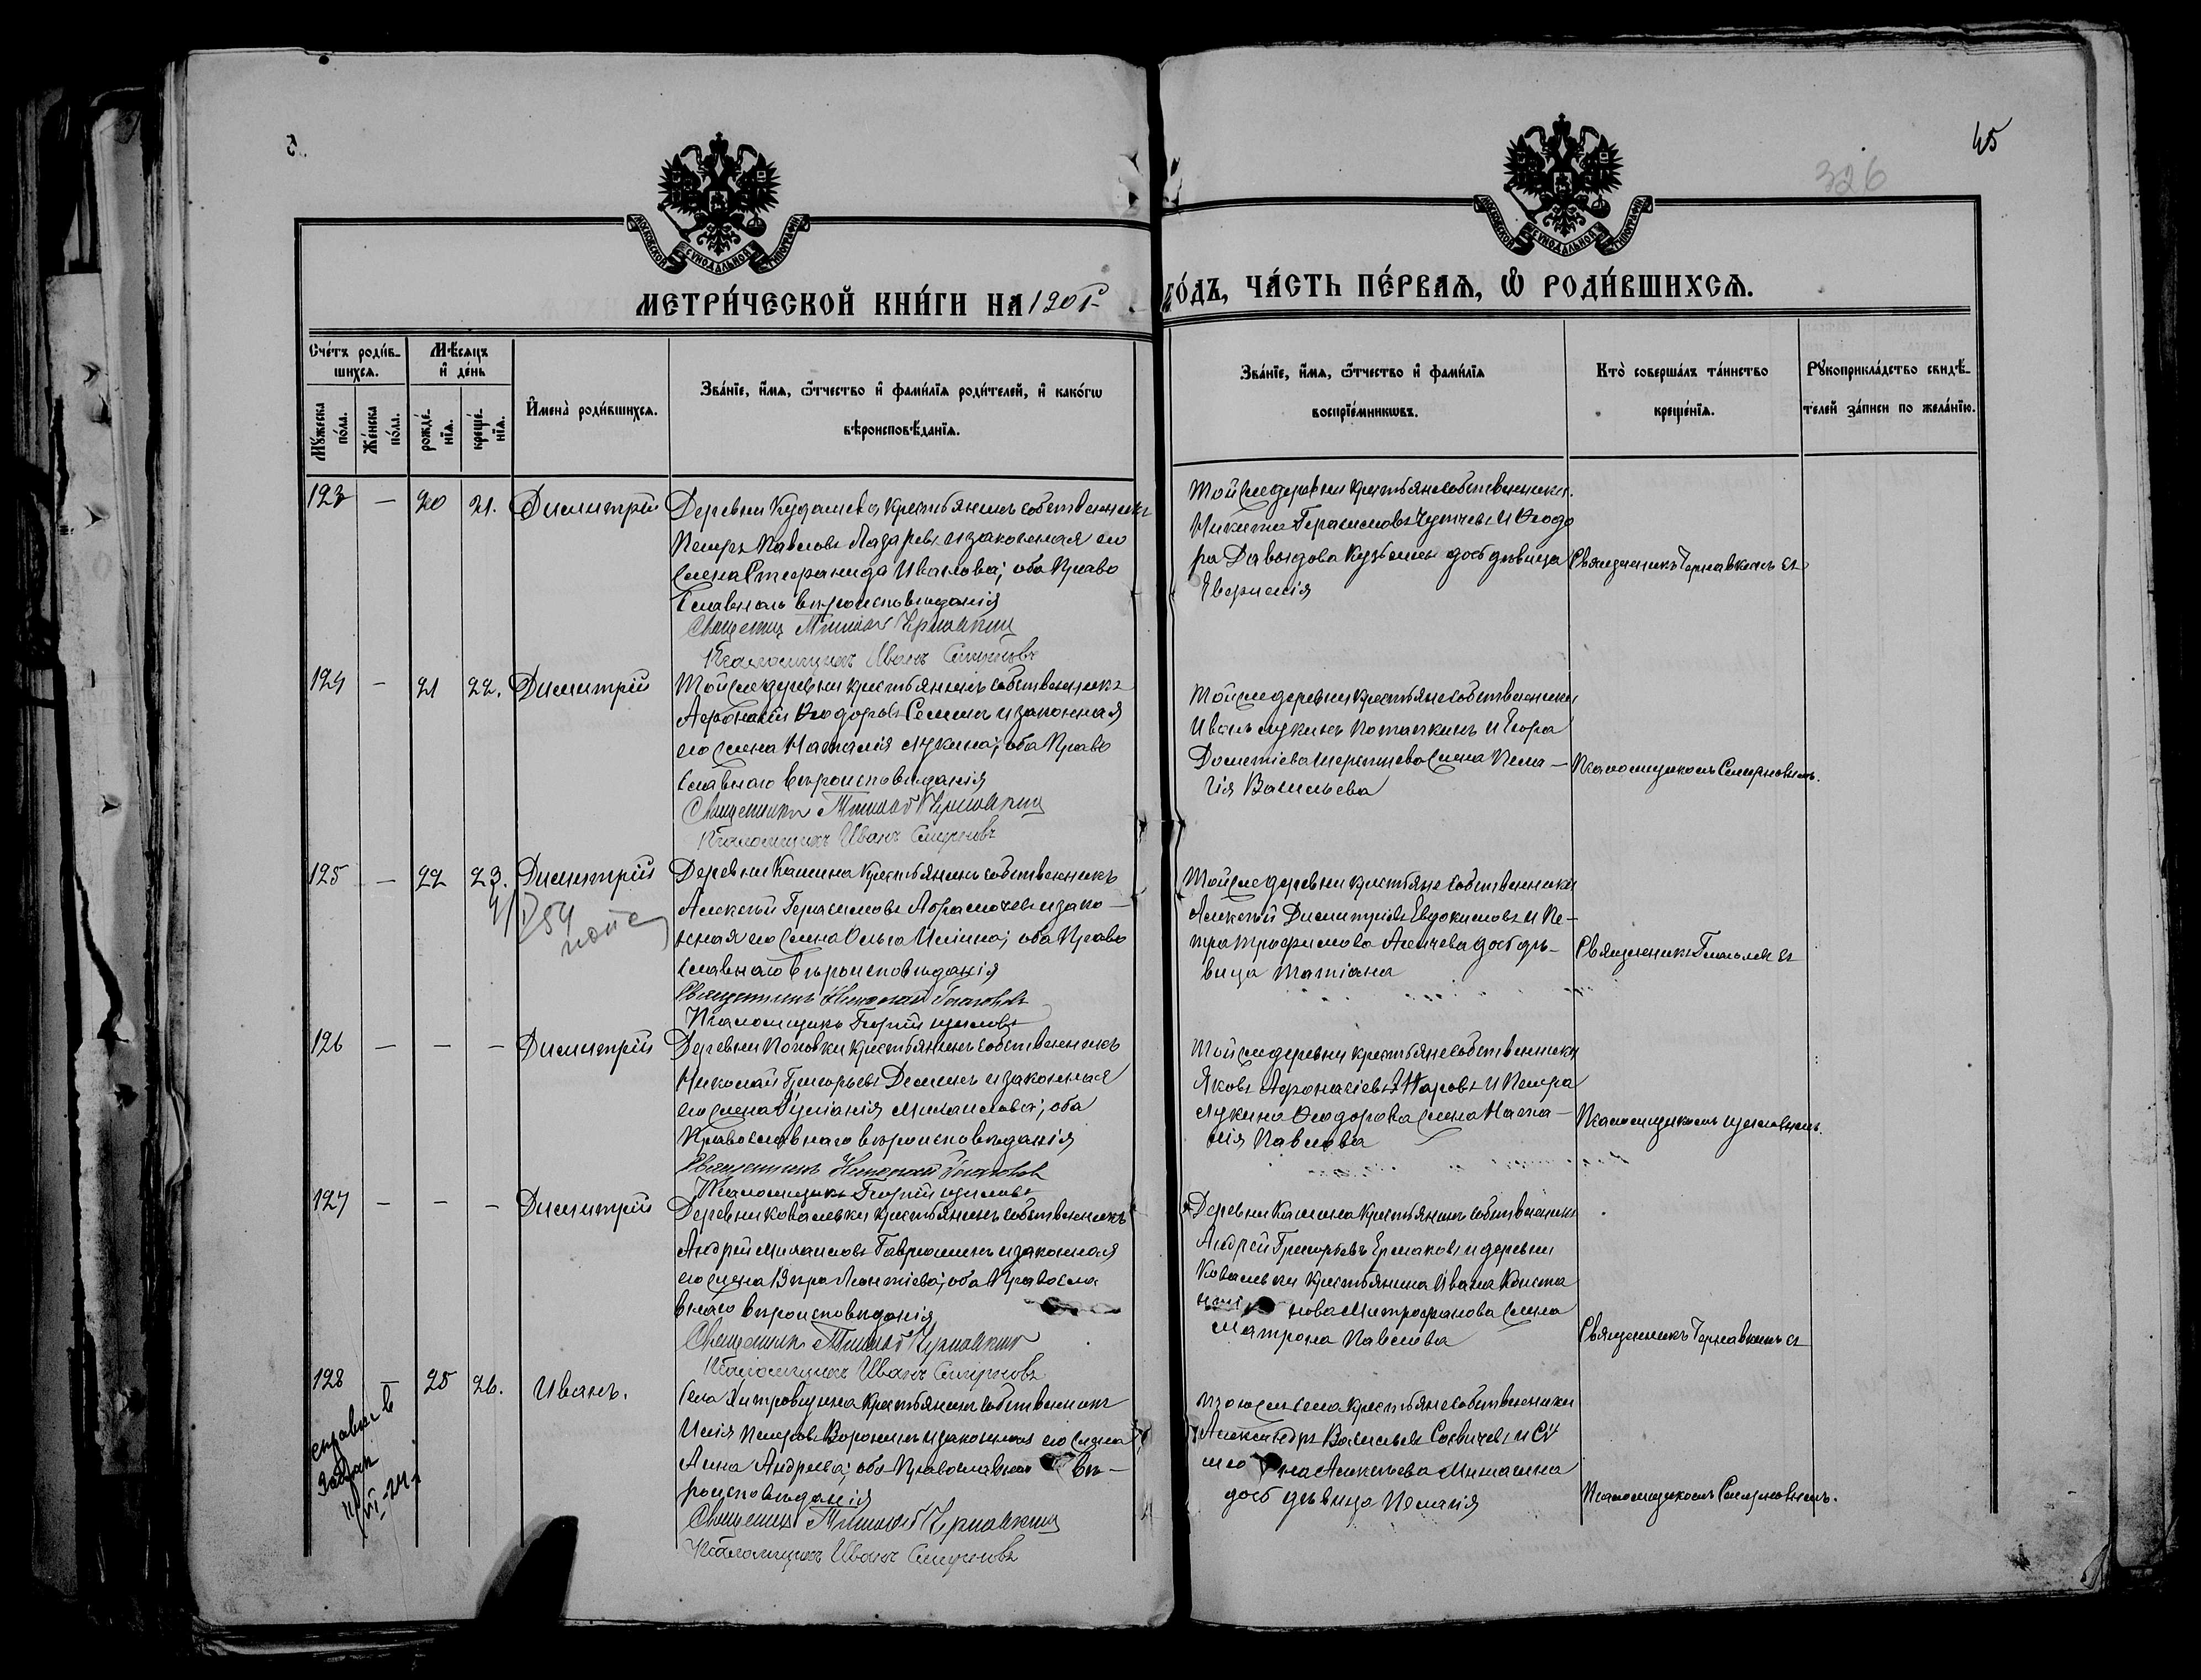 45
326
МОСКОВСКОЙ СѴНОДАЛЬНОЙ ТИПОГРАФІИ
МОСКОВСКОЙ СѴНОДАЛЬНОЙ ТИПОГРАФІИ
МЕТРИ́ЧЕСКОЙ КНИ́ГИ НА 1901
ГО́ДЪ, ЧА́СТЬ ПЕ́РВАѦ, Ѡ҆ РОДИ́ВШИХСѦ.
Сче́тъ роди́в-
шихсѧ.
Мѣ́сѧцъ
и҆ де́нь
Мꙋ́жеска
по́ла.
Же́нска
по́ла.
рожде́-
нїѧ.
креще́-
нїѧ.
И҆мена̀ роди́вшихсѧ.
Зва́нїе, и҆́мѧ, ѻ҆́тчество и҆ фами́лїѧ роди́телей, и҆ како́гѡ
вѣроисповѣ́данїѧ.
Зва́нїе, и҆́мѧ, ѻ҆́тчество и҆ фами́лїѧ
воспрїе́мникѡвъ.
Кто̀ соверша́лъ та́инство
креще́нїѧ.
Рꙋкоприкла́дство свидѣ́-
телей за́писи по жела́нїю.
123 — 20 21. Димитрій
Деревни Кудашева крестьянинъ собственникъ
Петръ Павловъ Лазаревъ и законная его
жена Стефанида Иванова; оба Право
славнаго вѣроисповѣданія
Священникъ Чернавкинъ
Псаломщикъ Иванъ Смирновъ
Той же деревни крестьяне собственники
Никита Герасимовъ и Ѳеодо
ра Давыдова Кузьмины дочь дѣвица
Евфимія
Священникъ Чернавкинъ съ
124 — 21 22. Димитрій
Той же деревни крестьянинъ собственникъ
Аѳонасій Ѳеодоровъ Семинъ и законная
его жена Наталія Лукина; оба Право
славнаго вѣроисповѣданія
Священникъ Чернавкинъ
Псаломщикъ Иванъ Смирновъ
Той же деревни крестьяне собственники
Иванъ Лукинъ Потапкинъ и Егора
Дометіева жена Пела-
гія Васильева
Псаломщикомъ Смирновымъ.
125 — 22 23. Димитрій
Деревни Кашина крестьянинъ собственникъ
Алексѣй Герасимовъ Абрамочевъ и зако-
нная его жена Ольга Ильина; оба Право
славнаго вѣроисповѣданія
Священникъ Николай Глаголевъ
Псаломщикъ Георгій
Той же деревни крестьяне собственники
Алексѣй Димитріевъ Евдокимовъ и Пе-
тра Трофимова Аничева дочь дѣ-
вица Татіана
Священникъ Глаголевъ съ
126 — — — Димитрій
Деревни Поповки крестьянинъ собственникъ
Николай Григорьевъ Деминъ и законная
его жена Іуліанія Михаилова; оба
Православнаго вѣроисповѣданія
Священникъ Николай Глаголевъ
Псаломщикъ Георгій
Той же деревни крестьяне собственники
Яковъ Аѳонасіевъ и Петра
Лукина Ѳеодорова жена Ната-
лія Павлова
Псаломщикомъ
127 — — — Димитрій
Деревни Ковалевки крестьянинъ собственникъ
Андрей Михаиловъ Гаврюшинъ и законная
его жена Вѣра Леонтіева; оба Правосла
внаго вѣроисповѣданія
Священникъ Чернавкинъ
Псаломщикъ Иванъ Смирновъ
Деревни Кашина крестьянинъ собственникъ
Андрей Григорьевъ Ермаковъ и деревни
Ковалевки крестьянина Ивана Конста
нти нова Митрофанова жена
Матрона Павлова
Священникъ Чернавкинъ съ
128 — 25 26. Иванъ.
Села Хитровщина крестьянинъ собственникъ
Илія Петровъ Воронинъ и законная его жена
Анна Андреева; оба Православнаго вѣ-
роисповѣданія
Священникъ Чернавкинъ
Псаломщикъ Иванъ Смирновъ
Того же села крестьяне собственники
Александръ Васильевъ и Сѵ
мео на Алексѣева Минашина
дочь дѣвица Пелагія
Псаломщикомъ Смирновымъ.